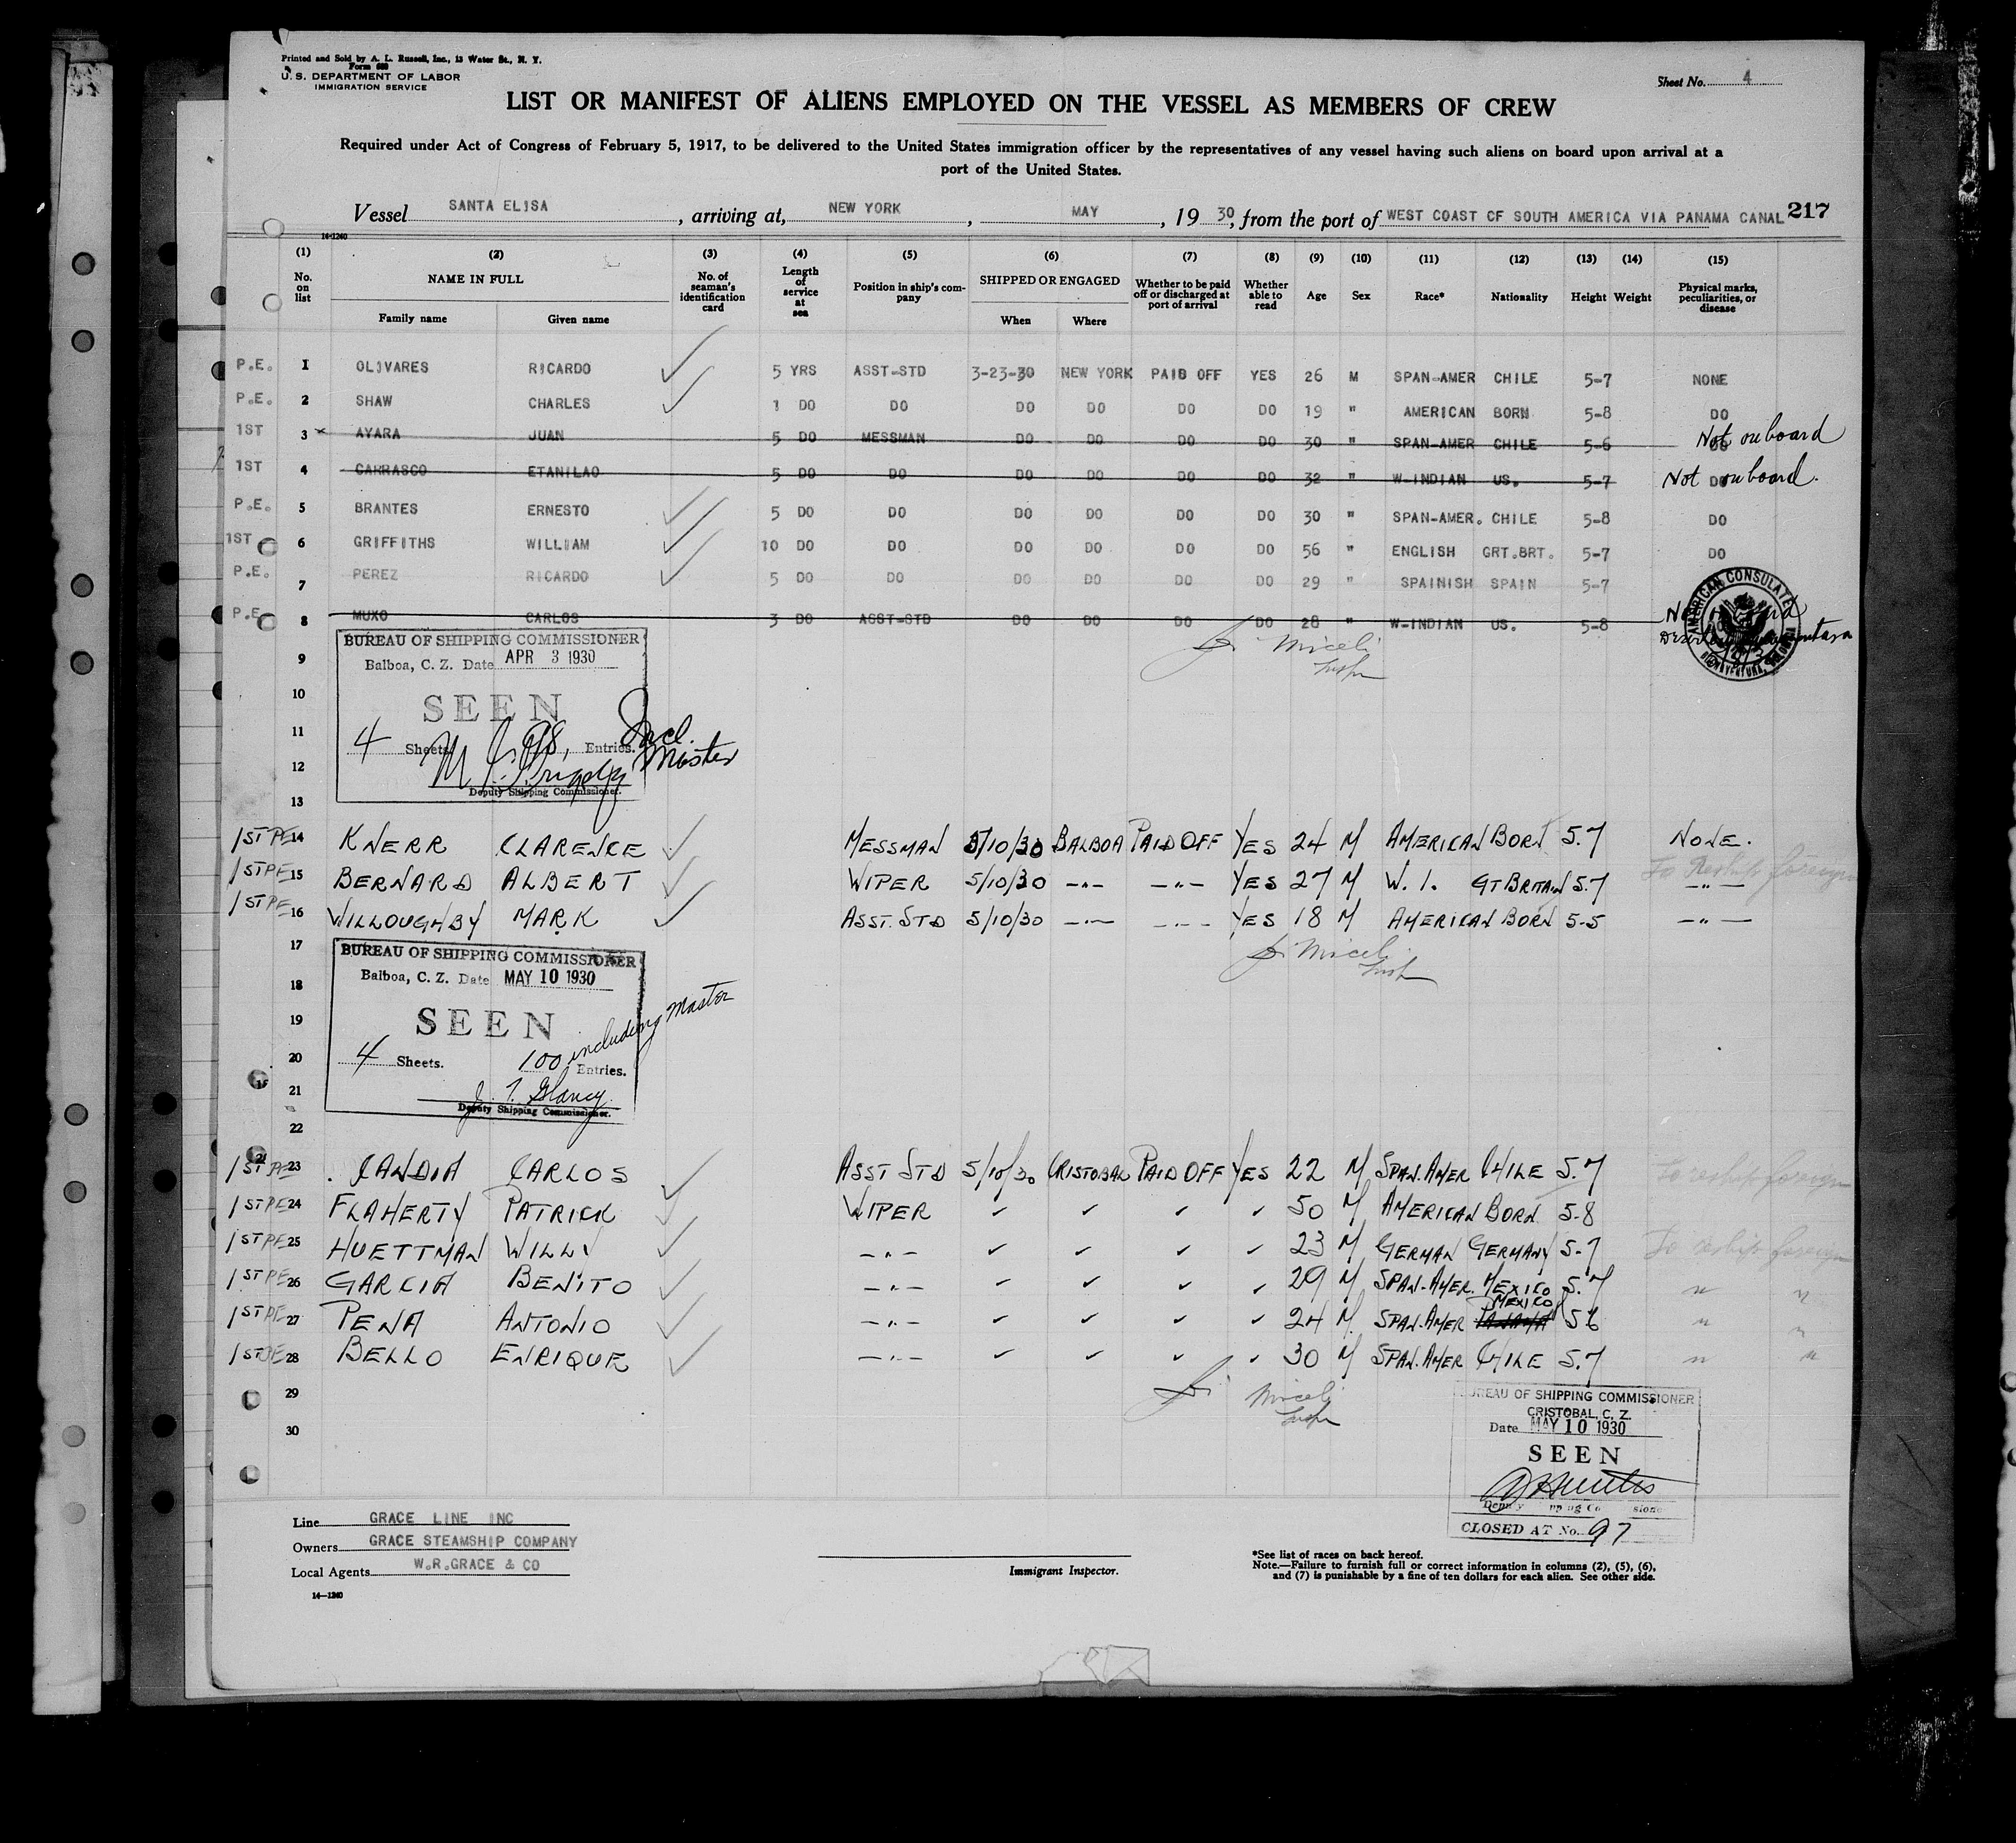 Printed and Sold by A. L. Russell, Inc., 13 Water St., N. Y.
Form 680
U. S. DEPARTMENT OF LABOR
IMMIGRATION SERVICE
Sheet No. 4
LIST OR MANIFEST OF ALIENS EMPLOYED ON THE VESSEL AS MEMBERS OF CREW
Required under Act of Congress of February 5, 1917, to be delivered to the United States immigration officer by the representatives of any vessel having such aliens on board upon arrival at a
port of the United States.
Vessel SANTA ELISA, arriving at, NEW YORK, MAY, 19 30, from the port of WEST COAST OF SOUTH AMERICA VIA PANAMA CANAL 217
14-1240
(1) (2) (3) (4) (5) (6) (7) (8) (9) (10) (11) (12) (13) (14) (15)
No. on list NAME IN FULL Family name Given name No. of seaman's identification card Length of service at sea Position in ship's company SHIPPED OR ENGAGED When Where Whether to be paid off or discharged at port of arrival Whether able to read Age Sex Race* Nationality Height Weight Physical marks, peculiarities, or disease
P.E. 1 OLIVARES RICARDO 5 YRS ASST-STD 3-23-30 NEW YORK PAID OFF YES 26 M SPAN-AMER CHILE 5-7 NONE
P.E. 2 SHAW CHARLES 1 DO DO DO DO DO DO 19 " AMERICAN BORN 5-8 DO
1ST 3 AYARA JUAN 5 DO MESSMAN DO DO DO DO 30 " SPAN-AMER CHILE 5-6 DO Not on board
1ST 4 CARRASCO ETANILAO 5 DO DO DO DO DO DO 32 " W-INDIAN US. 5-7 DO Not on board.
P.E. 5 BRANTES ERNESTO 5 DO DO DO DO DO DO 30 " SPAN-AMER. CHILE 5-8 DO
1ST 6 GRIFFITHS WILLIAM 10 DO DO DO DO DO DO 56 " ENGLISH GRT.BRT. 5-7 DO
P.E. 7 PEREZ RICARDO 5 DO DO DO DO DO DO 29 " SPAINISH SPAIN 5-7
P.E. 8 MUXO CARLOS 3 DO ASST-STD DO DO DO DO 28 " W-INDIAN US. 5-8
AMERICAN CONSULATE
J. Miceli
Insp
BUREAU OF SHIPPING COMMISSIONER
Balboa, C. Z. Date APR 3 1930
SEEN
4 Sheets 98, Entries. Incl. Master
Deputy Shipping Commissioner.
9
10
11
12
13
1ST PE 14 KNERR CLARENCE MESSMAN 5/10/30 BALBOA PAID OFF YES 24 M AMERICAN BORN 5.7 NONE.
1ST PE 15 BERNARD ALBERT WIPER 5/10/30 -"- -"- YES 27 M W. I. GT BRITAIN 5.7 -"- To Reship foreign
1ST PE 16 WILLOUGHBY MARK ASST. STD 5/10/30 -"- -"- YES 18 M AMERICAN BORN 5-5 -"-
J. Miceli
Insp
17
18
19
20
21
22
BUREAU OF SHIPPING COMMISSIONER
Balboa, C. Z. Date MAY 10 1930
SEEN
4 Sheets. 100 including Master Entries.
J. T. Glancy
Deputy Shipping Commissioner.
1ST PE 23 CANDIA CARLOS ASST STD 5/10/30 CRISTOBAL PAID OFF YES 22 M SPAN. AMER CHILE 5.7 To reship foreign
1ST PE 24 FLAHERTY PATRICK WIPER ✓ ✓ ✓ ✓ 50 M AMERICAN BORN 5-8
1ST PE 25 HUETTMAN WILLY -"- ✓ ✓ ✓ ✓ 23 M GERMAN GERMANY 5-7 To reship foreign
1ST PE 26 GARCIA BENITO -"- ✓ ✓ ✓ ✓ 29 M SPAN-AMER. MEXICO 5.7 " "
1ST PE 27 PENA ANTONIO -"- ✓ ✓ ✓ ✓ 24 M. SPAN-AMER MEXICO 5 6 " "
1ST PE 28 BELLO ENRIQUE -"- ✓ ✓ ✓ ✓ 30 M SPAN-AMER CHILE 5.7 " "
29
30
J. Miceli
Insp
BUREAU OF SHIPPING COMMISSIONER
CRISTOBAL, C. Z.
Date MAY 10 1930
SEEN
CLOSED AT No. 97
Line GRACE LINE INC
Owners GRACE STEAMSHIP COMPANY
Local Agents W.R.GRACE & CO
14—1240
Immigrant Inspector.
*See list of races on back hereof.
Note.—Failure to furnish full or correct information in columns (2), (5), (6),
and (7) is punishable by a fine of ten dollars for each alien. See other side.